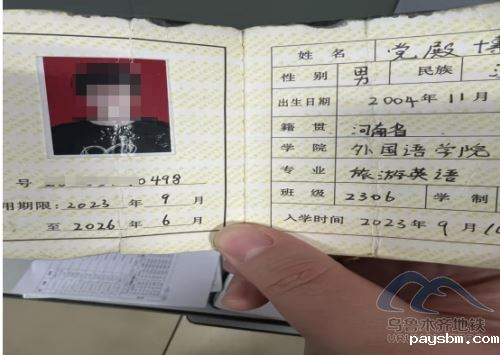 号 0498
用期限：2023 年 9 月
至 2026 年 6 月
姓 名 党殿博
性 别 男 民族
出生日期 2004年11月
籍 贯 河南省
学 院 外国语学院
专 业 旅游英语
班 级 2306 学 制
入学时间 2023年9月10
乌鲁木齐地铁
paysbm.com